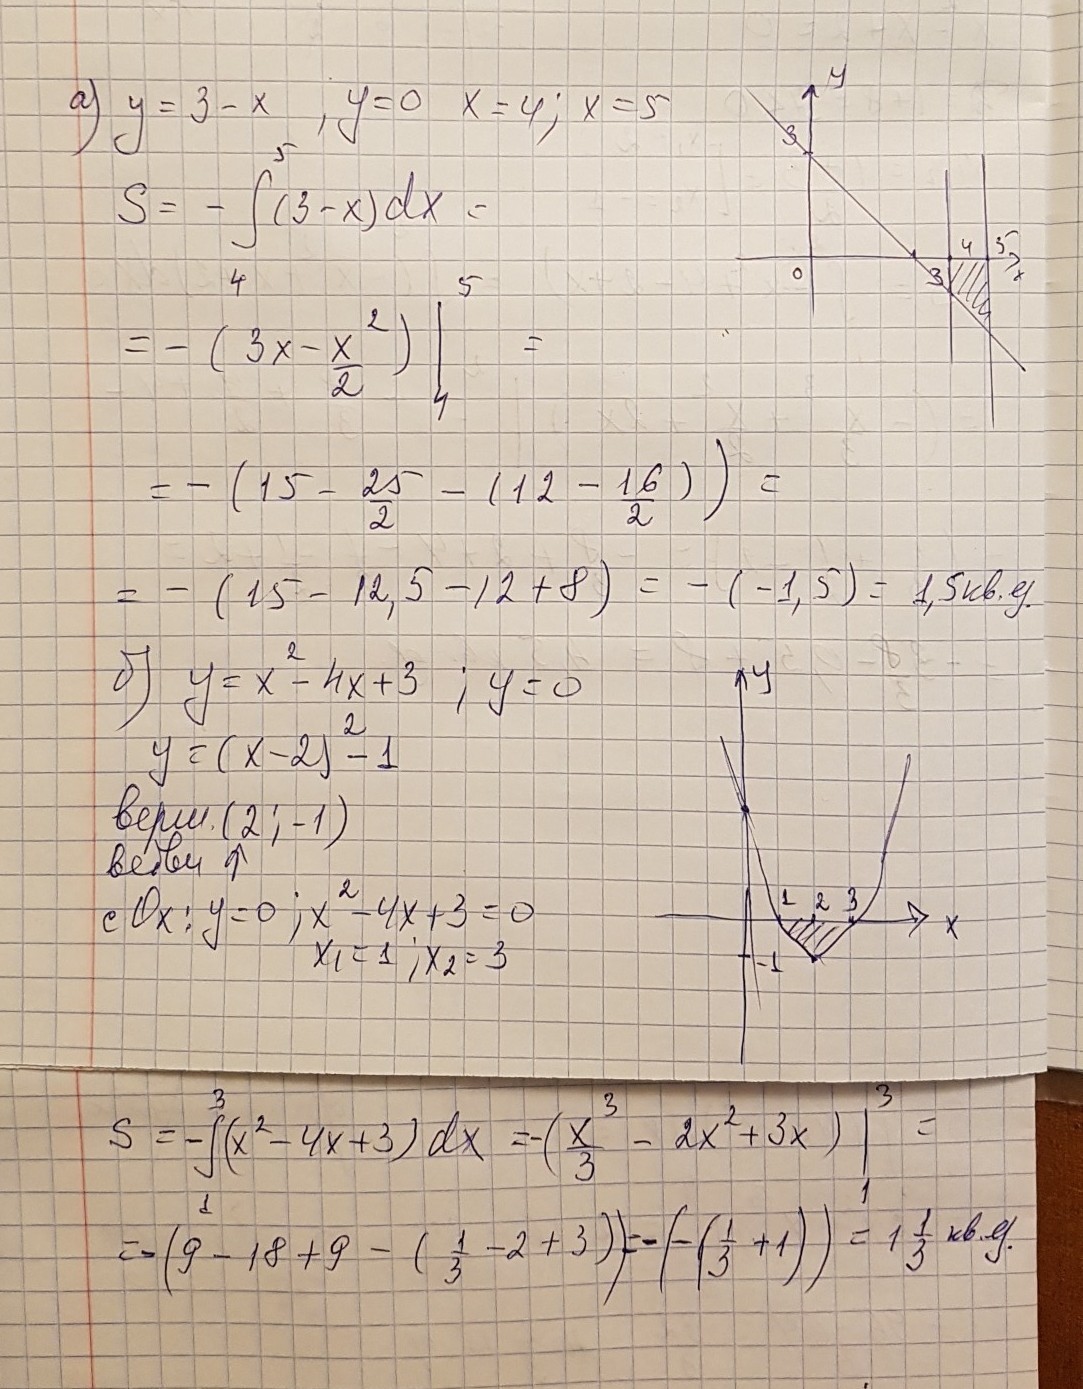 а) y = 3 - x , y = 0 x = 4; x = 5
S = - ∫₄⁵ (3-x) dx =
= - (3x - x²/2) |₄⁵ =
= - (15 - 25/2 - (12 - 16/2)) =
= - (15 - 12,5 - 12 + 8) = - (-1,5) = 1,5 кв.ед.
y
3
0
3
4
5
x
б) y = x² - 4x + 3 ; y = 0
y = (x-2)² - 1
верш. (2; -1)
ветви ↑
с Ox: y = 0 ; x² - 4x + 3 = 0
x₁ = 1 ; x₂ = 3
y
1 2 3
x
-1
S = - ∫₁³ (x² - 4x + 3) dx = -(x³/3 - 2x² + 3x) |₁³ =
= -(9 - 18 + 9 - (1/3 - 2 + 3)) = -(-(1/3 + 1)) = 1 1/3 кв.ед.